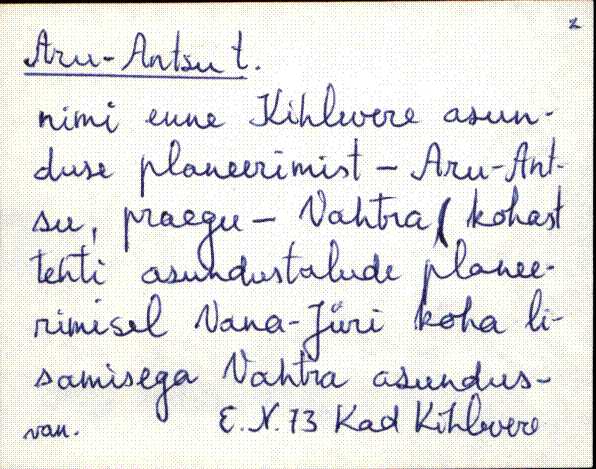 2
Aru-Antsu t.
nimi enne Kihlevere asun-
duse planeerimist – Aru-Ant-
su, praegu – Vahtra (kohast
tehti asundustalude planee-
rimisel Vana-Jüri koha li-
samisega Vahtra asundus-
van. E.N. 73 Kad Kihlevere